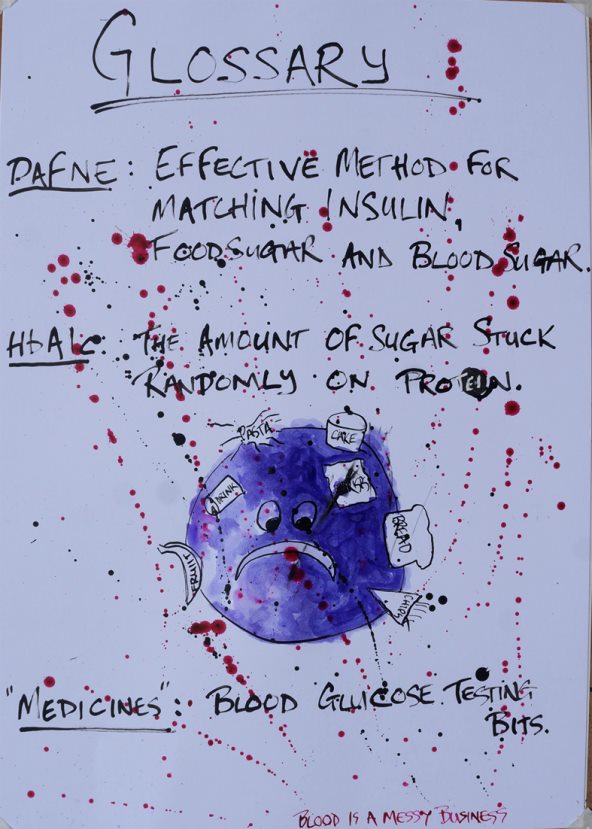 GLOSSARY
DAFNE: EFFECTIVE METHOD FOR
MATCHING INSULIN,
FOODSUGAR AND BLOOD SUGAR.
HbA1c: THE AMOUNT OF SUGAR STUCK
RANDOMLY ON PROTEIN.
PASTA
CAKE
DRINK
BREAD
FRUIT
"MEDICINES": BLOOD GLUCOSE TESTING
BITS.
BLOOD IS A MESSY BUSINESS